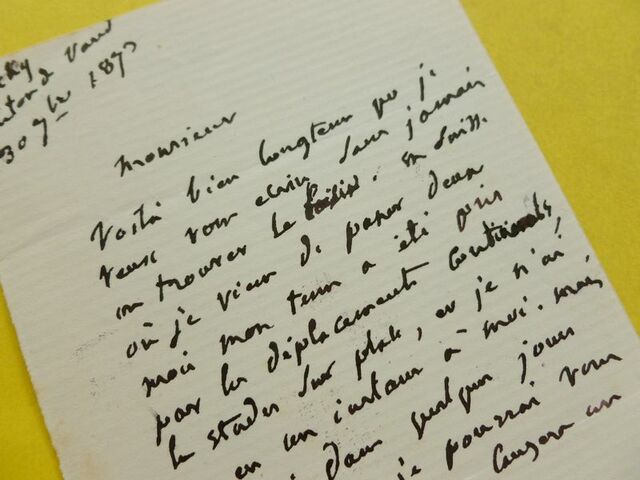 30 9bre 1890
Monsieur
Voilà bien longtems que je
veux vous écrire sans jamais
en trouver le loisir. En Suisse
où je viens de passer deux
mois mon tems a été pris
par les déplacements continuels,
les stades sur place, et je n'ai
eu un instant à moi. Mais
dans quelques jours
je pourrai vous